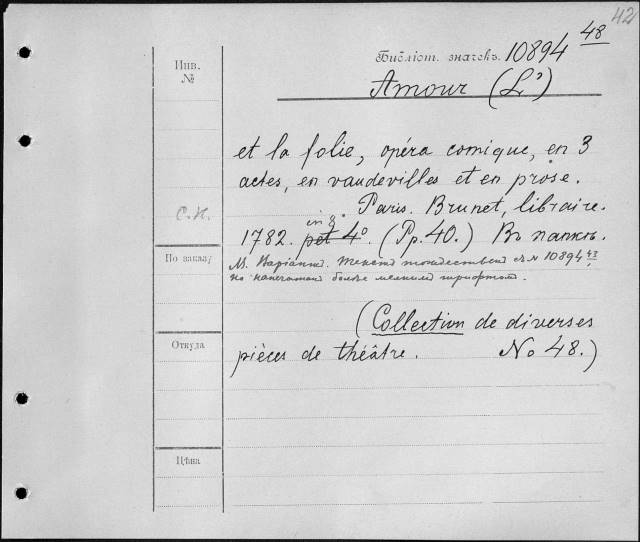 42
Инв.
№
Библіот. значекъ. 10894 48
Amour (L')
et la folie, opéra comique, en 3
actes, en vaudevilles et en prose.
С.К.
Paris. Brunet, libraire.
in 8°.
1782. pet 4°. (Pp. 40.) Въ папкѣ.
По заказу
М. Варіантъ. Текстъ тождественъ съ № 10894 43,
но напечатан болѣе мелким шрифтом.
(Collection de diverses
Откуда
pièces de théâtre. No 48.)
Цѣна